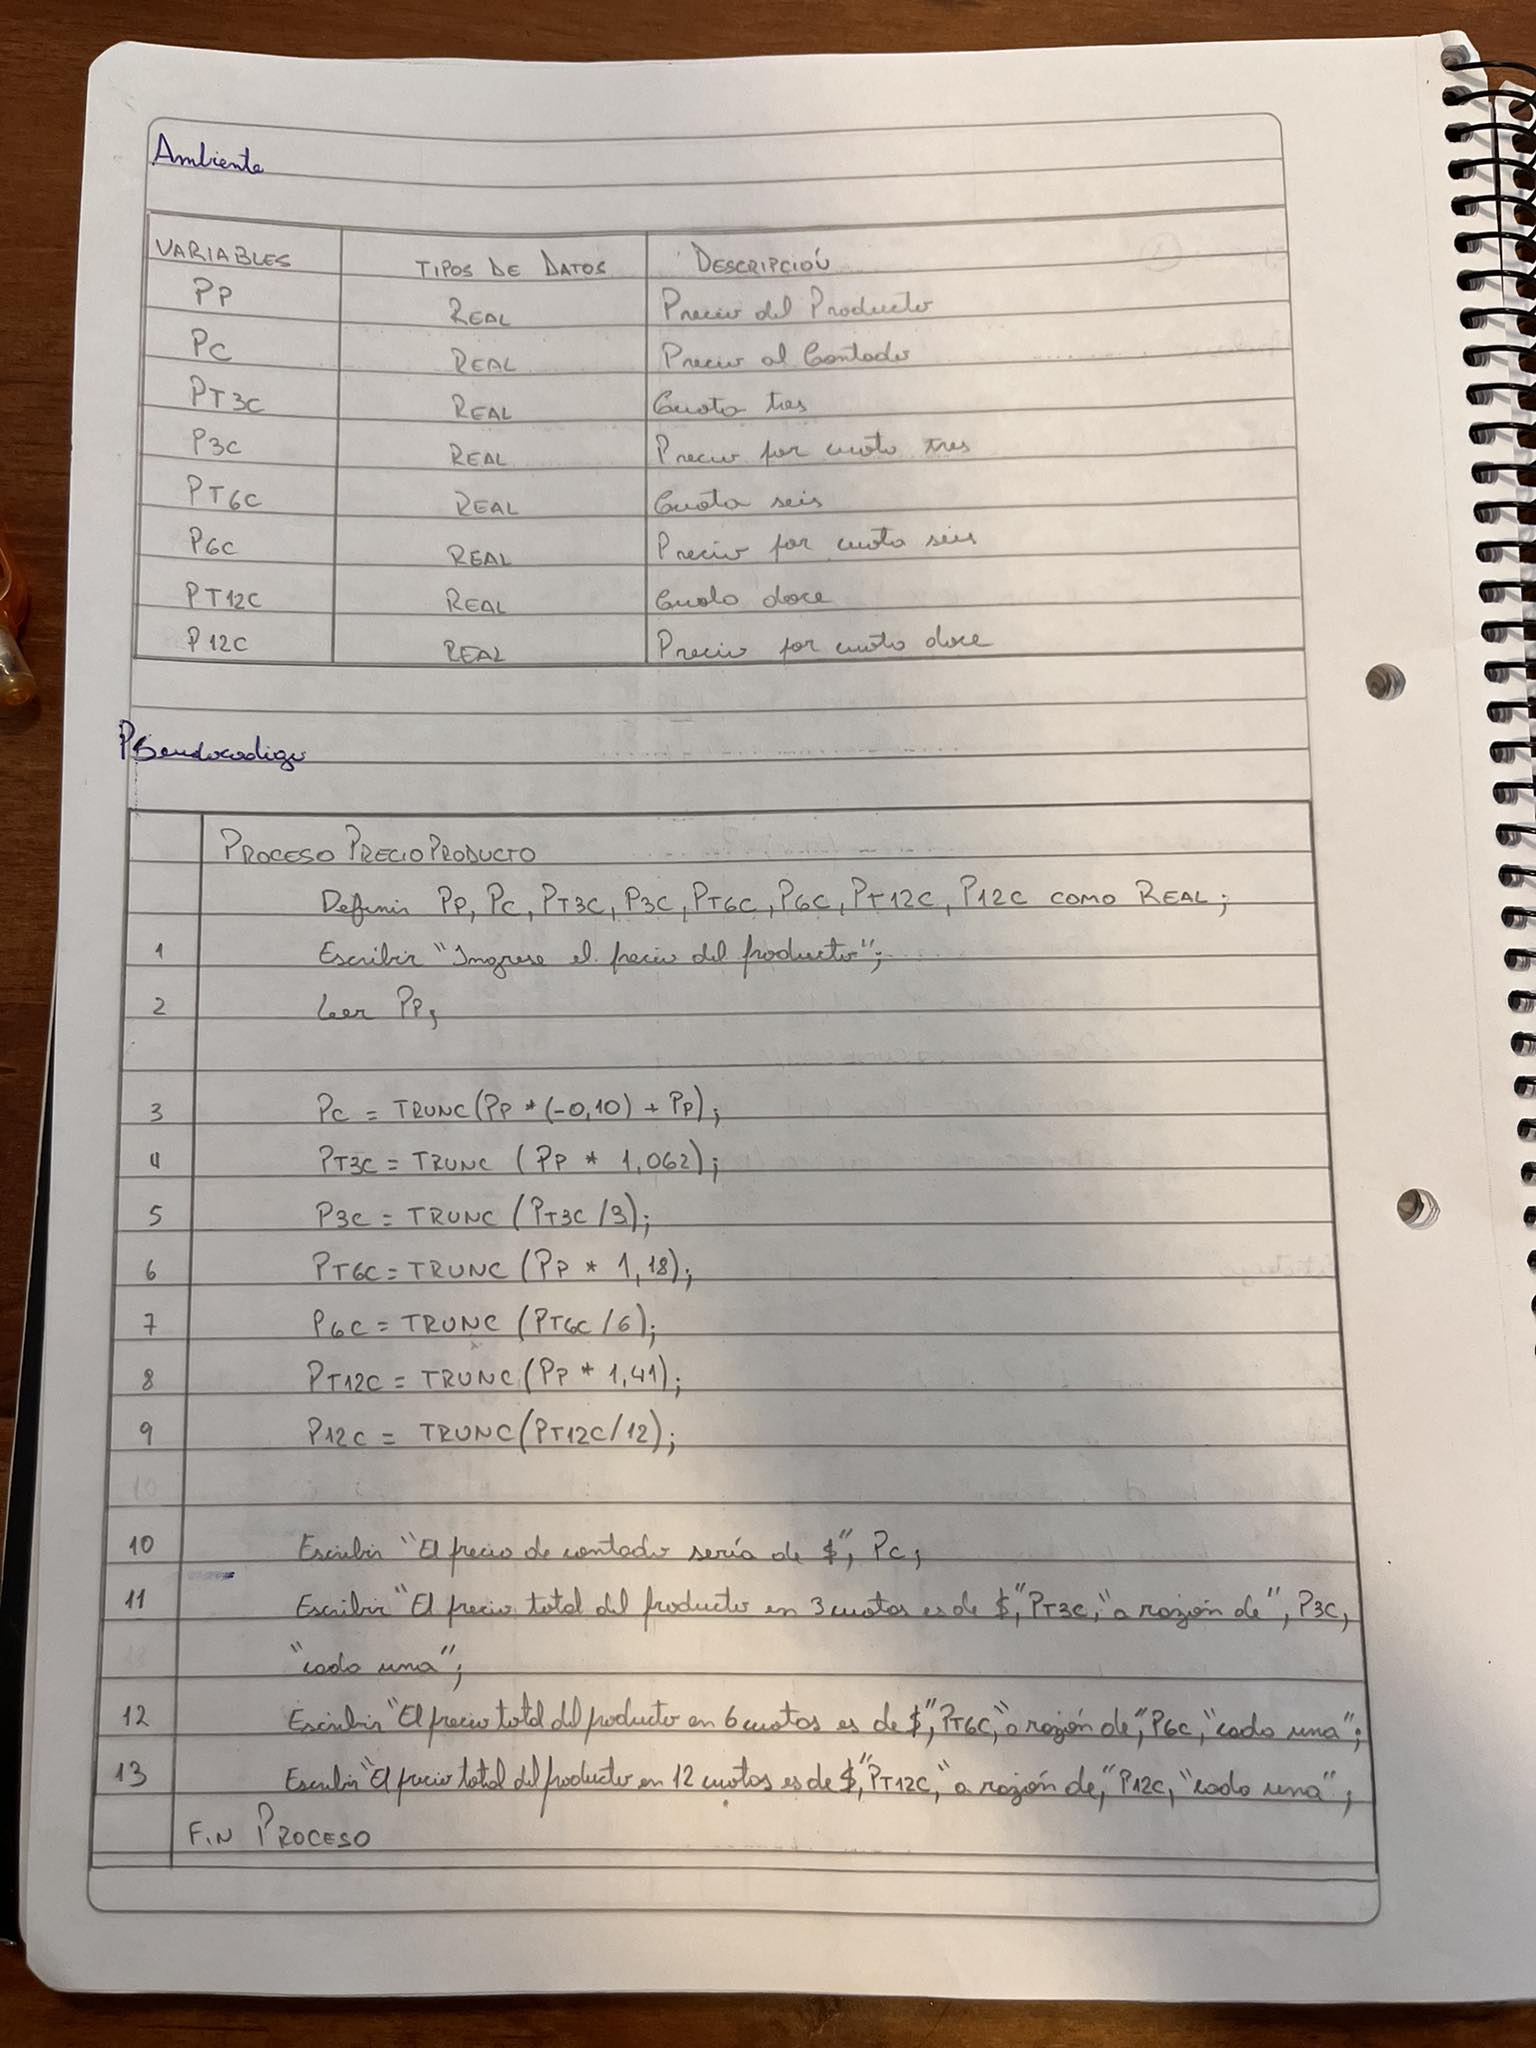 Ambiente
VARIABLES TIPOS DE DATOS DESCRIPCIÓN
PP REAL Precio del Producto
PC REAL Precio al Contado
PT3C REAL Cuota tres
P3C REAL Precio por cuota tres
PT6C REAL Cuota seis
P6C REAL Precio por cuota seis
PT12C REAL Cuota doce
P12C REAL Precio por cuota doce
Pseudocodigo
PROCESO PRECIOPRODUCTO
Definir PP, PC, PT3C, P3C, PT6C, P6C, PT12C, P12C COMO REAL;
1 Escribir "Ingrese el precio del producto";
2 Leer PP;
3 PC = TRUNC(PP * (-0,10) + PP);
4 PT3C = TRUNC (PP * 1,062);
5 P3C = TRUNC (PT3C /3);
6 PT6C = TRUNC (PP * 1,18);
7 P6C = TRUNC (PT6C /6);
8 PT12C = TRUNC (PP * 1,41);
9 P12C = TRUNC(PT12C/12);
10
10 Escribir "El precio de contado sería de $", PC;
11 Escribir "El precio total del producto en 3 cuotas es de $", PT3C, "a razón de", P3C,
"cada una";
12 Escribir "El precio total del producto en 6 cuotas es de $", PT6C, "a razón de", P6C, "cada una";
13 Escribir "El precio total del producto en 12 cuotas es de $", PT12C, "a razón de", P12C, "cada una";
FIN PROCESO